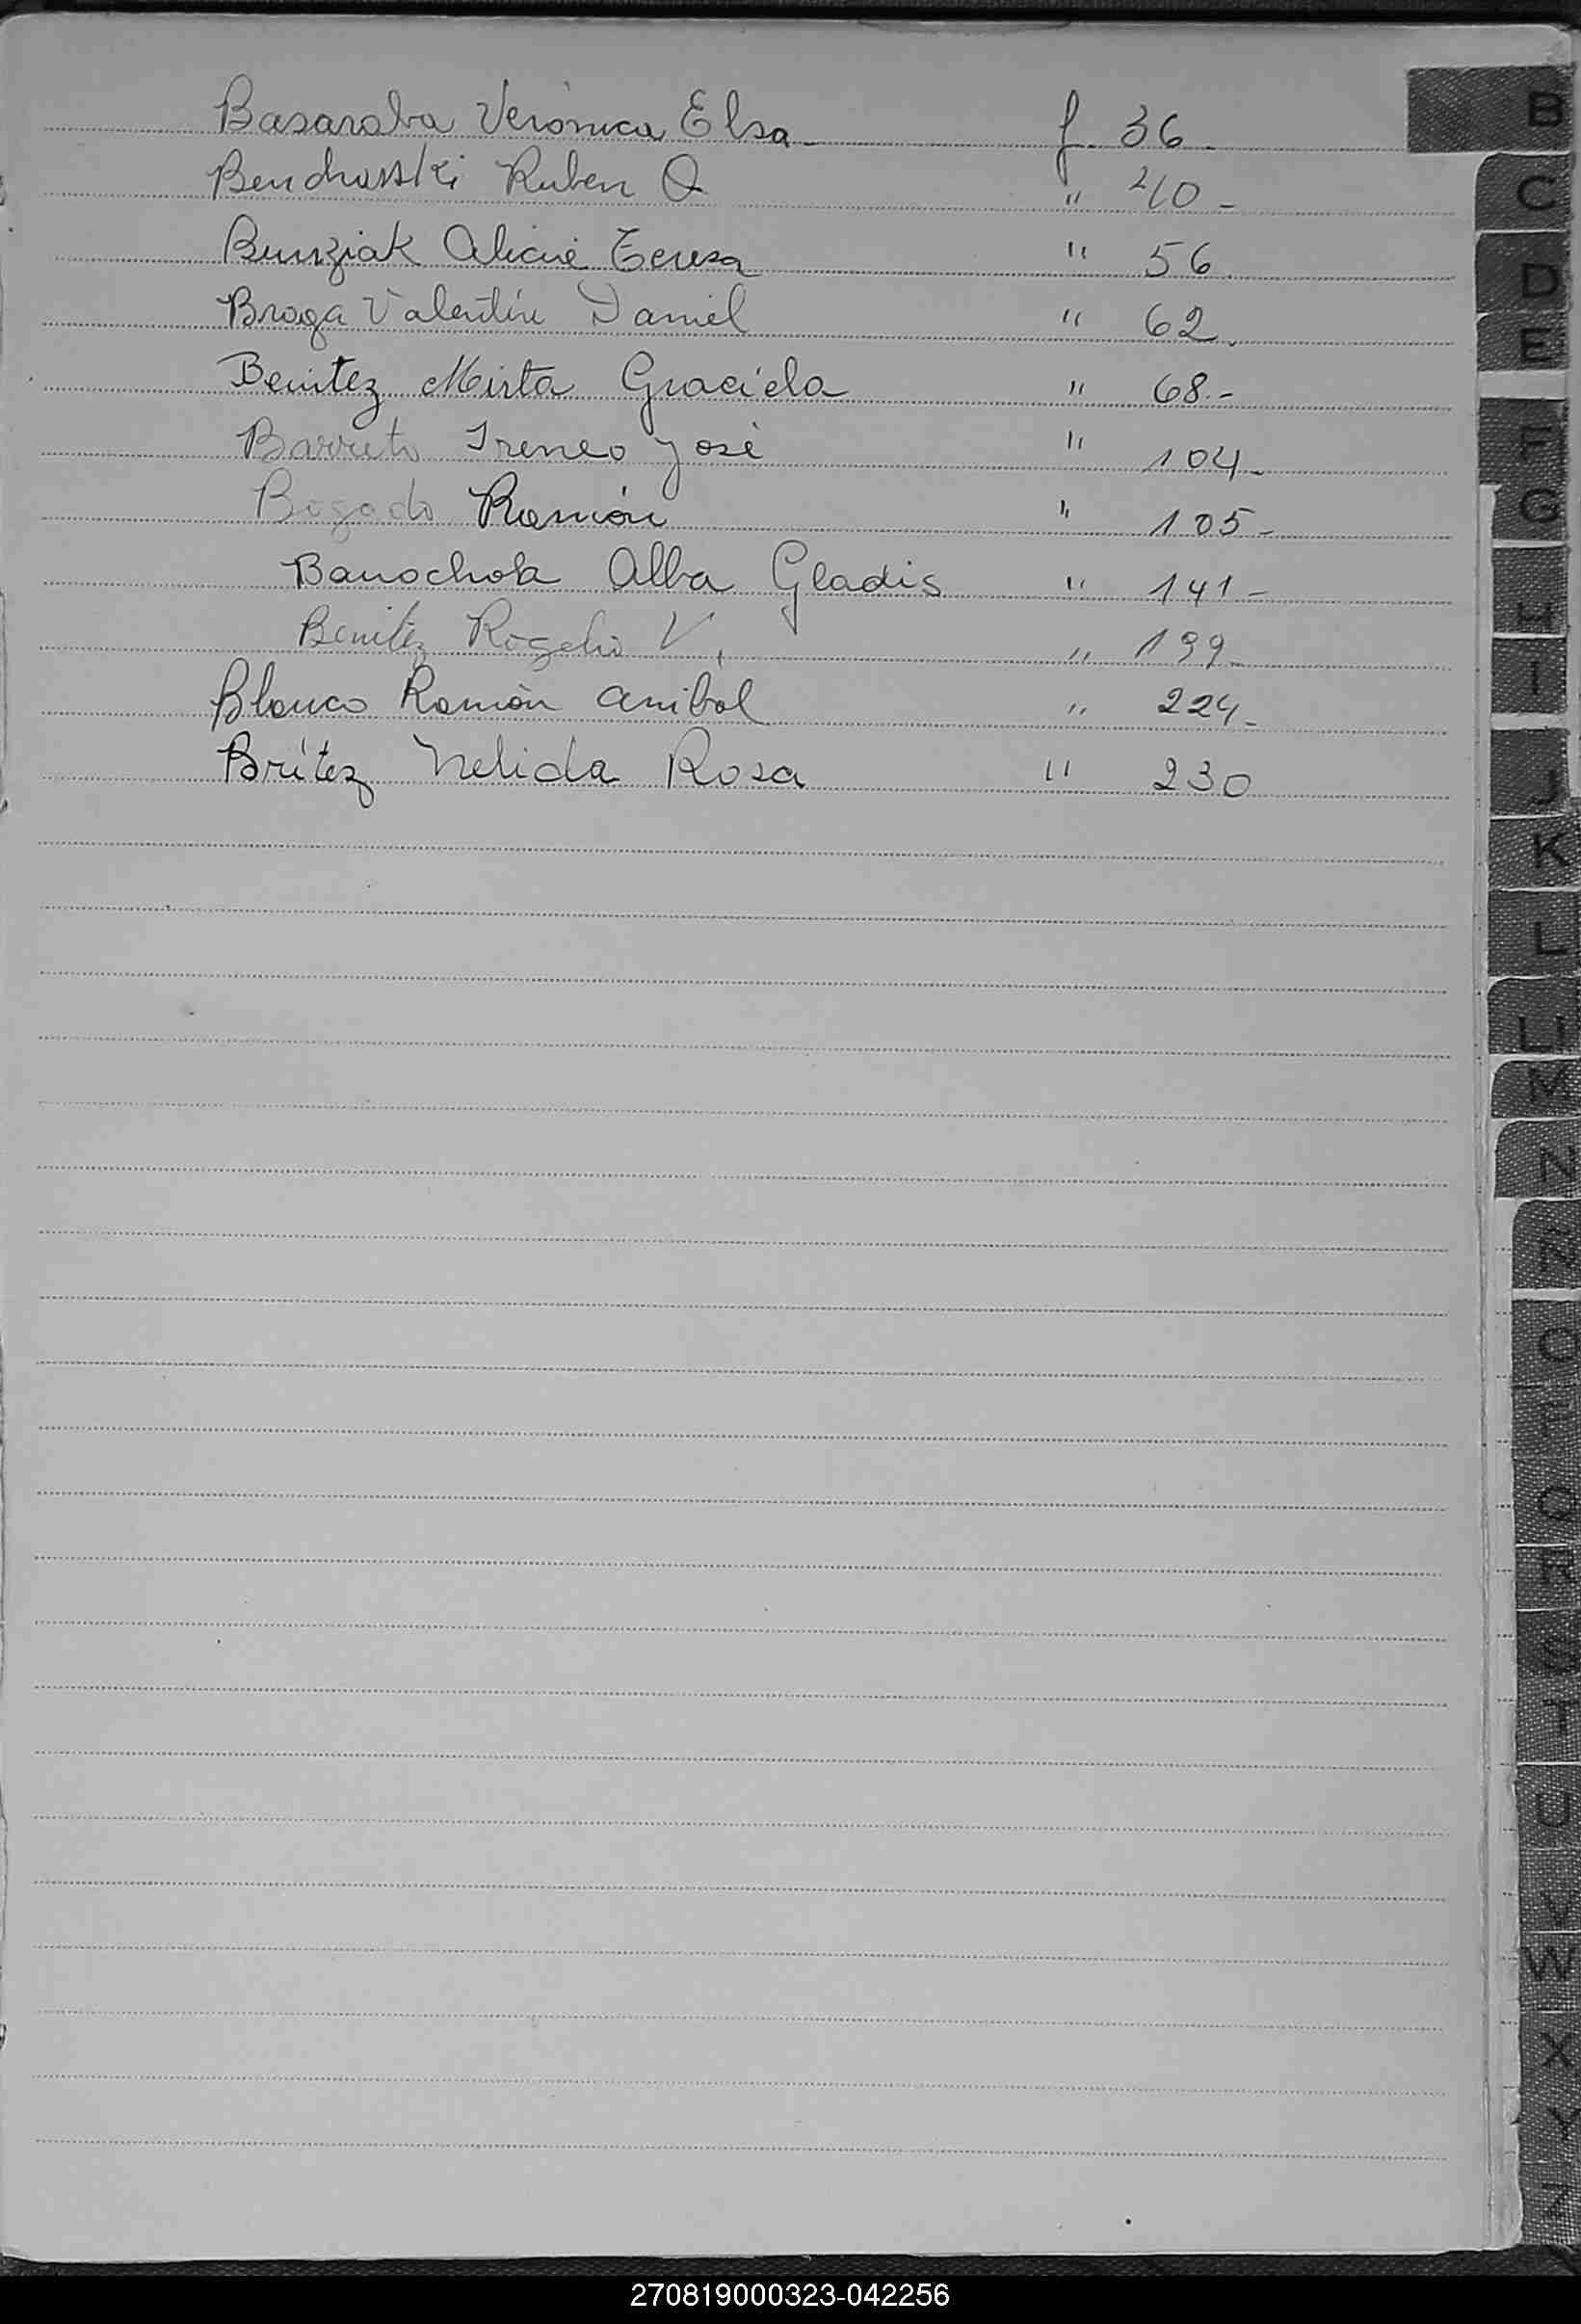 Basaraba Verónica Elsa - f. 36 -
Benchasski Ruben O " 40 -
Bunziak Alicia Teresa " 56.
Braga Valentín Daniel " 62.
Benitez Mirta Graciela " 68.-
Barreto Ireneo José " 104-
Bogado Ramón " 105-
Banochok Alba Gladis " 141-
Benitez Rogelio V, " 199-
Blanco Ramón Anibal " 224-
Brítez Nelida Rosa " 230
B
C
D
E
F
G
H
I
J
K
L
LL
M
N
Ñ
O
P
Q
R
S
T
U
V
W
X
Y
Z
270819000323-042256